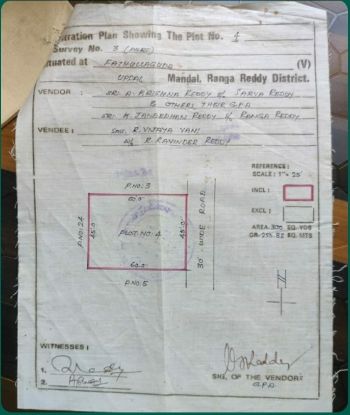 tration Plan Showing The Plot No. 4
Survey No. 3 (PART)
tuated at FATHULLAGUDA (V)
UPPAL Mandal, Ranga Reddy District.
VENDOR : SRI. A. KRISHNA REDDY S/o SARVA REDDY
& OTHERS THEIR G.P.A
SRI. K. JANARDHAN REDDY S/o RANGA REDDY
VENDEE : SMT. R. VIJAYA VANI
W/o R. RAVINDER REDDY
REFERENCE :
SCALE : 1" = 25'
INCL :
EXCL :
AREA 300 SQ. YDS
OR 250.82 SQ. MTS
P.NO: 3
60.0'
P.NO: 24
45.0'
PLOT NO: 4
45.0'
30' WIDE ROAD
60.0'
P.NO: 5
WITNESSES :
1.
2.
SIG. OF THE VENDOR
G.P.A